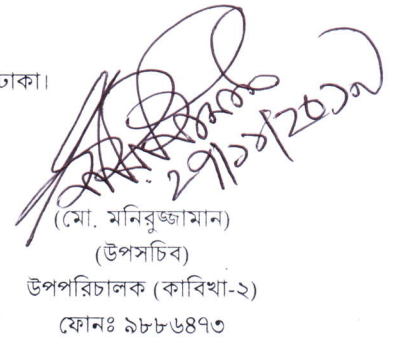 ঢাকা।
(মো. মনিরুজ্জামান)
(উপসচিব)
উপপরিচালক (কাবিখা-২)
ফোনঃ ৯৮৮৬৪৭৩